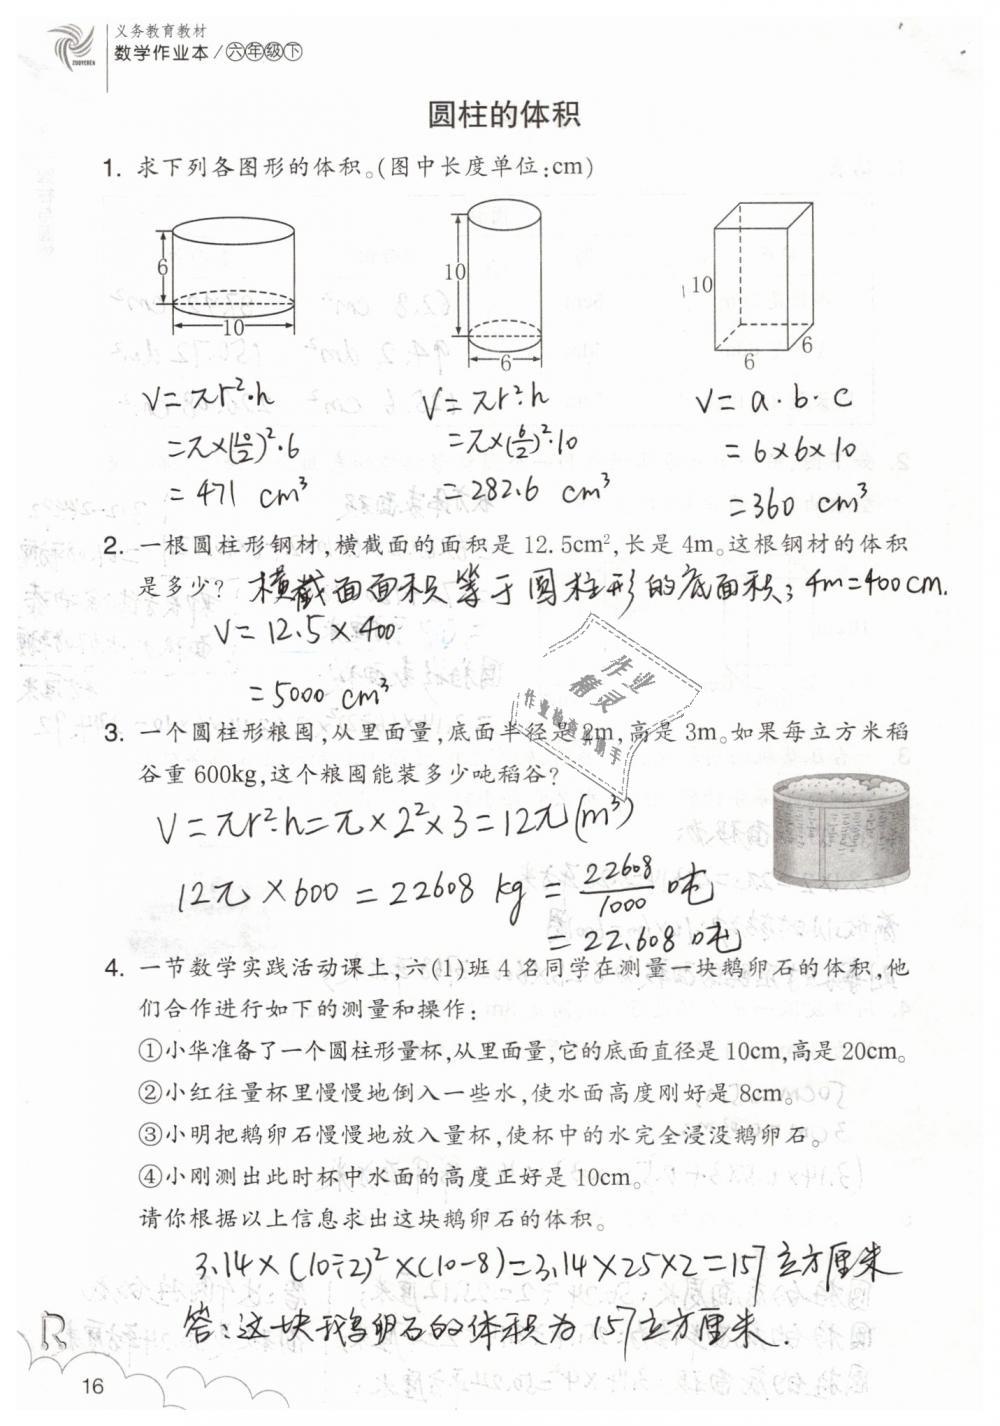 义务教育教材
数学作业本/六年级下
ZUOYEBEN
圆柱的体积
1. 求下列各图形的体积。(图中长度单位:cm)
6
10
10
6
10
6
6
V=πr²·h
=π×(10/2)²·6
=471 cm³
V=πr²·h
=π×(6/2)²·10
=282.6 cm³
V=a·b·c
=6×6×10
=360 cm³
2. 一根圆柱形钢材,横截面的面积是 12.5cm²,长是 4m。这根钢材的体积
是多少? 横截面面积等于圆柱形的底面积; 4m=400cm.
V=12.5×400
=5000 cm³
3. 一个圆柱形粮囤,从里面量,底面半径是 2m,高是 3m。如果每立方米稻
谷重 600kg,这个粮囤能装多少吨稻谷?
V=πr²·h=π×2²×3=12π(m³)
12π×600=22608 kg=22608/1000 吨
=22.608 吨
作业
精灵
作业检查小助手
4. 一节数学实践活动课上,六(1)班 4 名同学在测量一块鹅卵石的体积,他
们合作进行如下的测量和操作:
①小华准备了一个圆柱形量杯,从里面量,它的底面直径是 10cm,高是 20cm。
②小红往量杯里慢慢地倒入一些水,使水面高度刚好是 8cm。
③小明把鹅卵石慢慢地放入量杯,使杯中的水完全浸没鹅卵石。
④小刚测出此时杯中水面的高度正好是 10cm。
请你根据以上信息求出这块鹅卵石的体积。
3.14×(10÷2)²×(10-8)=3.14×25×2=157立方厘米
答:这块鹅卵石的体积为157立方厘米.
R
16